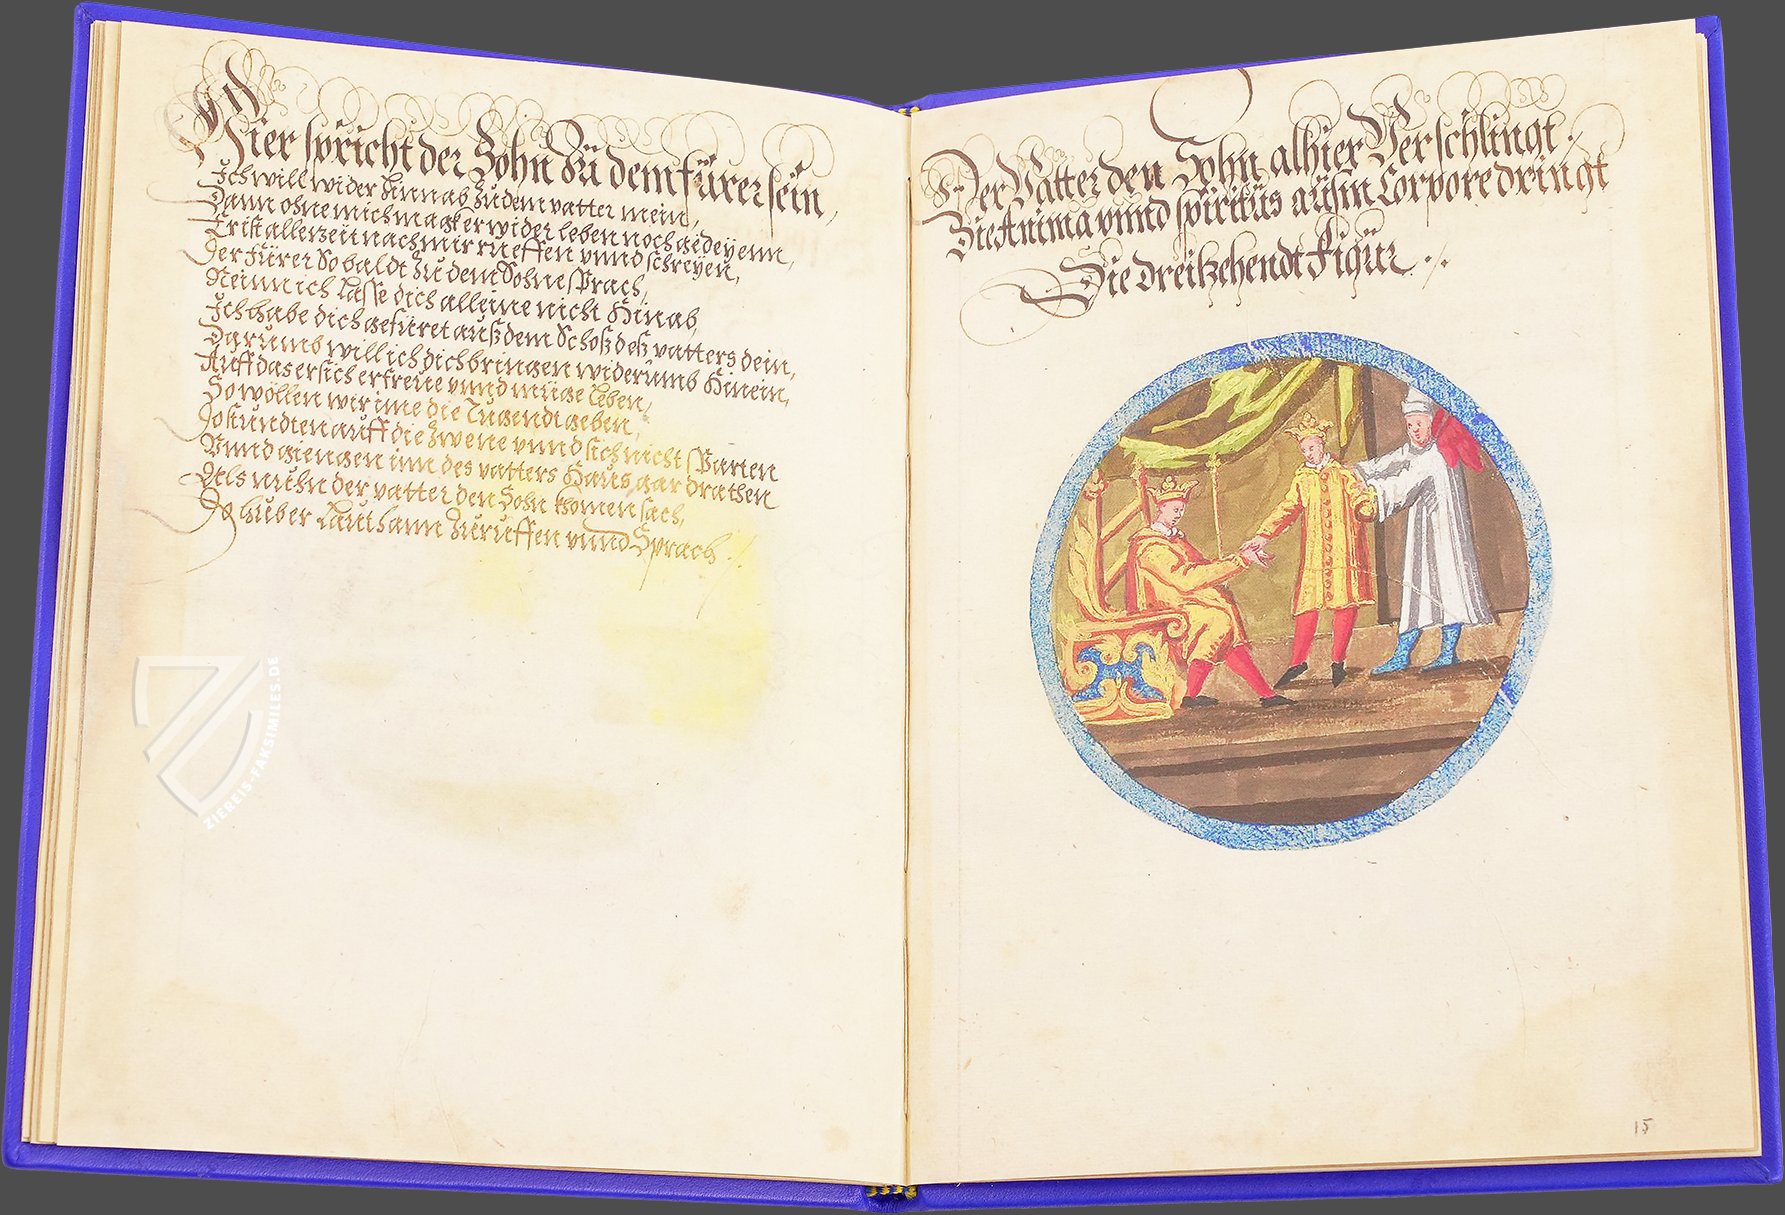 Hier spricht der Sohn zu dem fürer sein,
Ich will wider hinnab zu dem vatter mein,
Dann ohne mich mag er wider leben noch gedeyenn,
Er ist allerzeit nach mir rueffen vnnd schreyen,
Der fürer So baldt zu dem Sohne sprach,
Neinn ich Lasse dich alleine nicht Hinab,
Ich habe dich gefüret auß dem Schoß deß vatters dein,
Darumb will ich dich bringen widerumb Hinein,
Auff das er sich erfreue vnnd müge Leben,
So wöllen wir ime die Tugendt geben,
Do stundten auff die zwene vnnd sich nicht sparten
Vnnd giengen inn des vatters Haus gar drathen
Als nuhn der vatter den Sohn khomen sach,
Do hub er Laut hann zuruffen vnnd Sprach ./.
Der Vatter den Sohn alhier Verschlingt .
Die Anima vnnd spiritus aus'm Corpore dringt
Die dreitzehendt Figur ./.
15
ZIEREIS-FAKSIMILES.DE